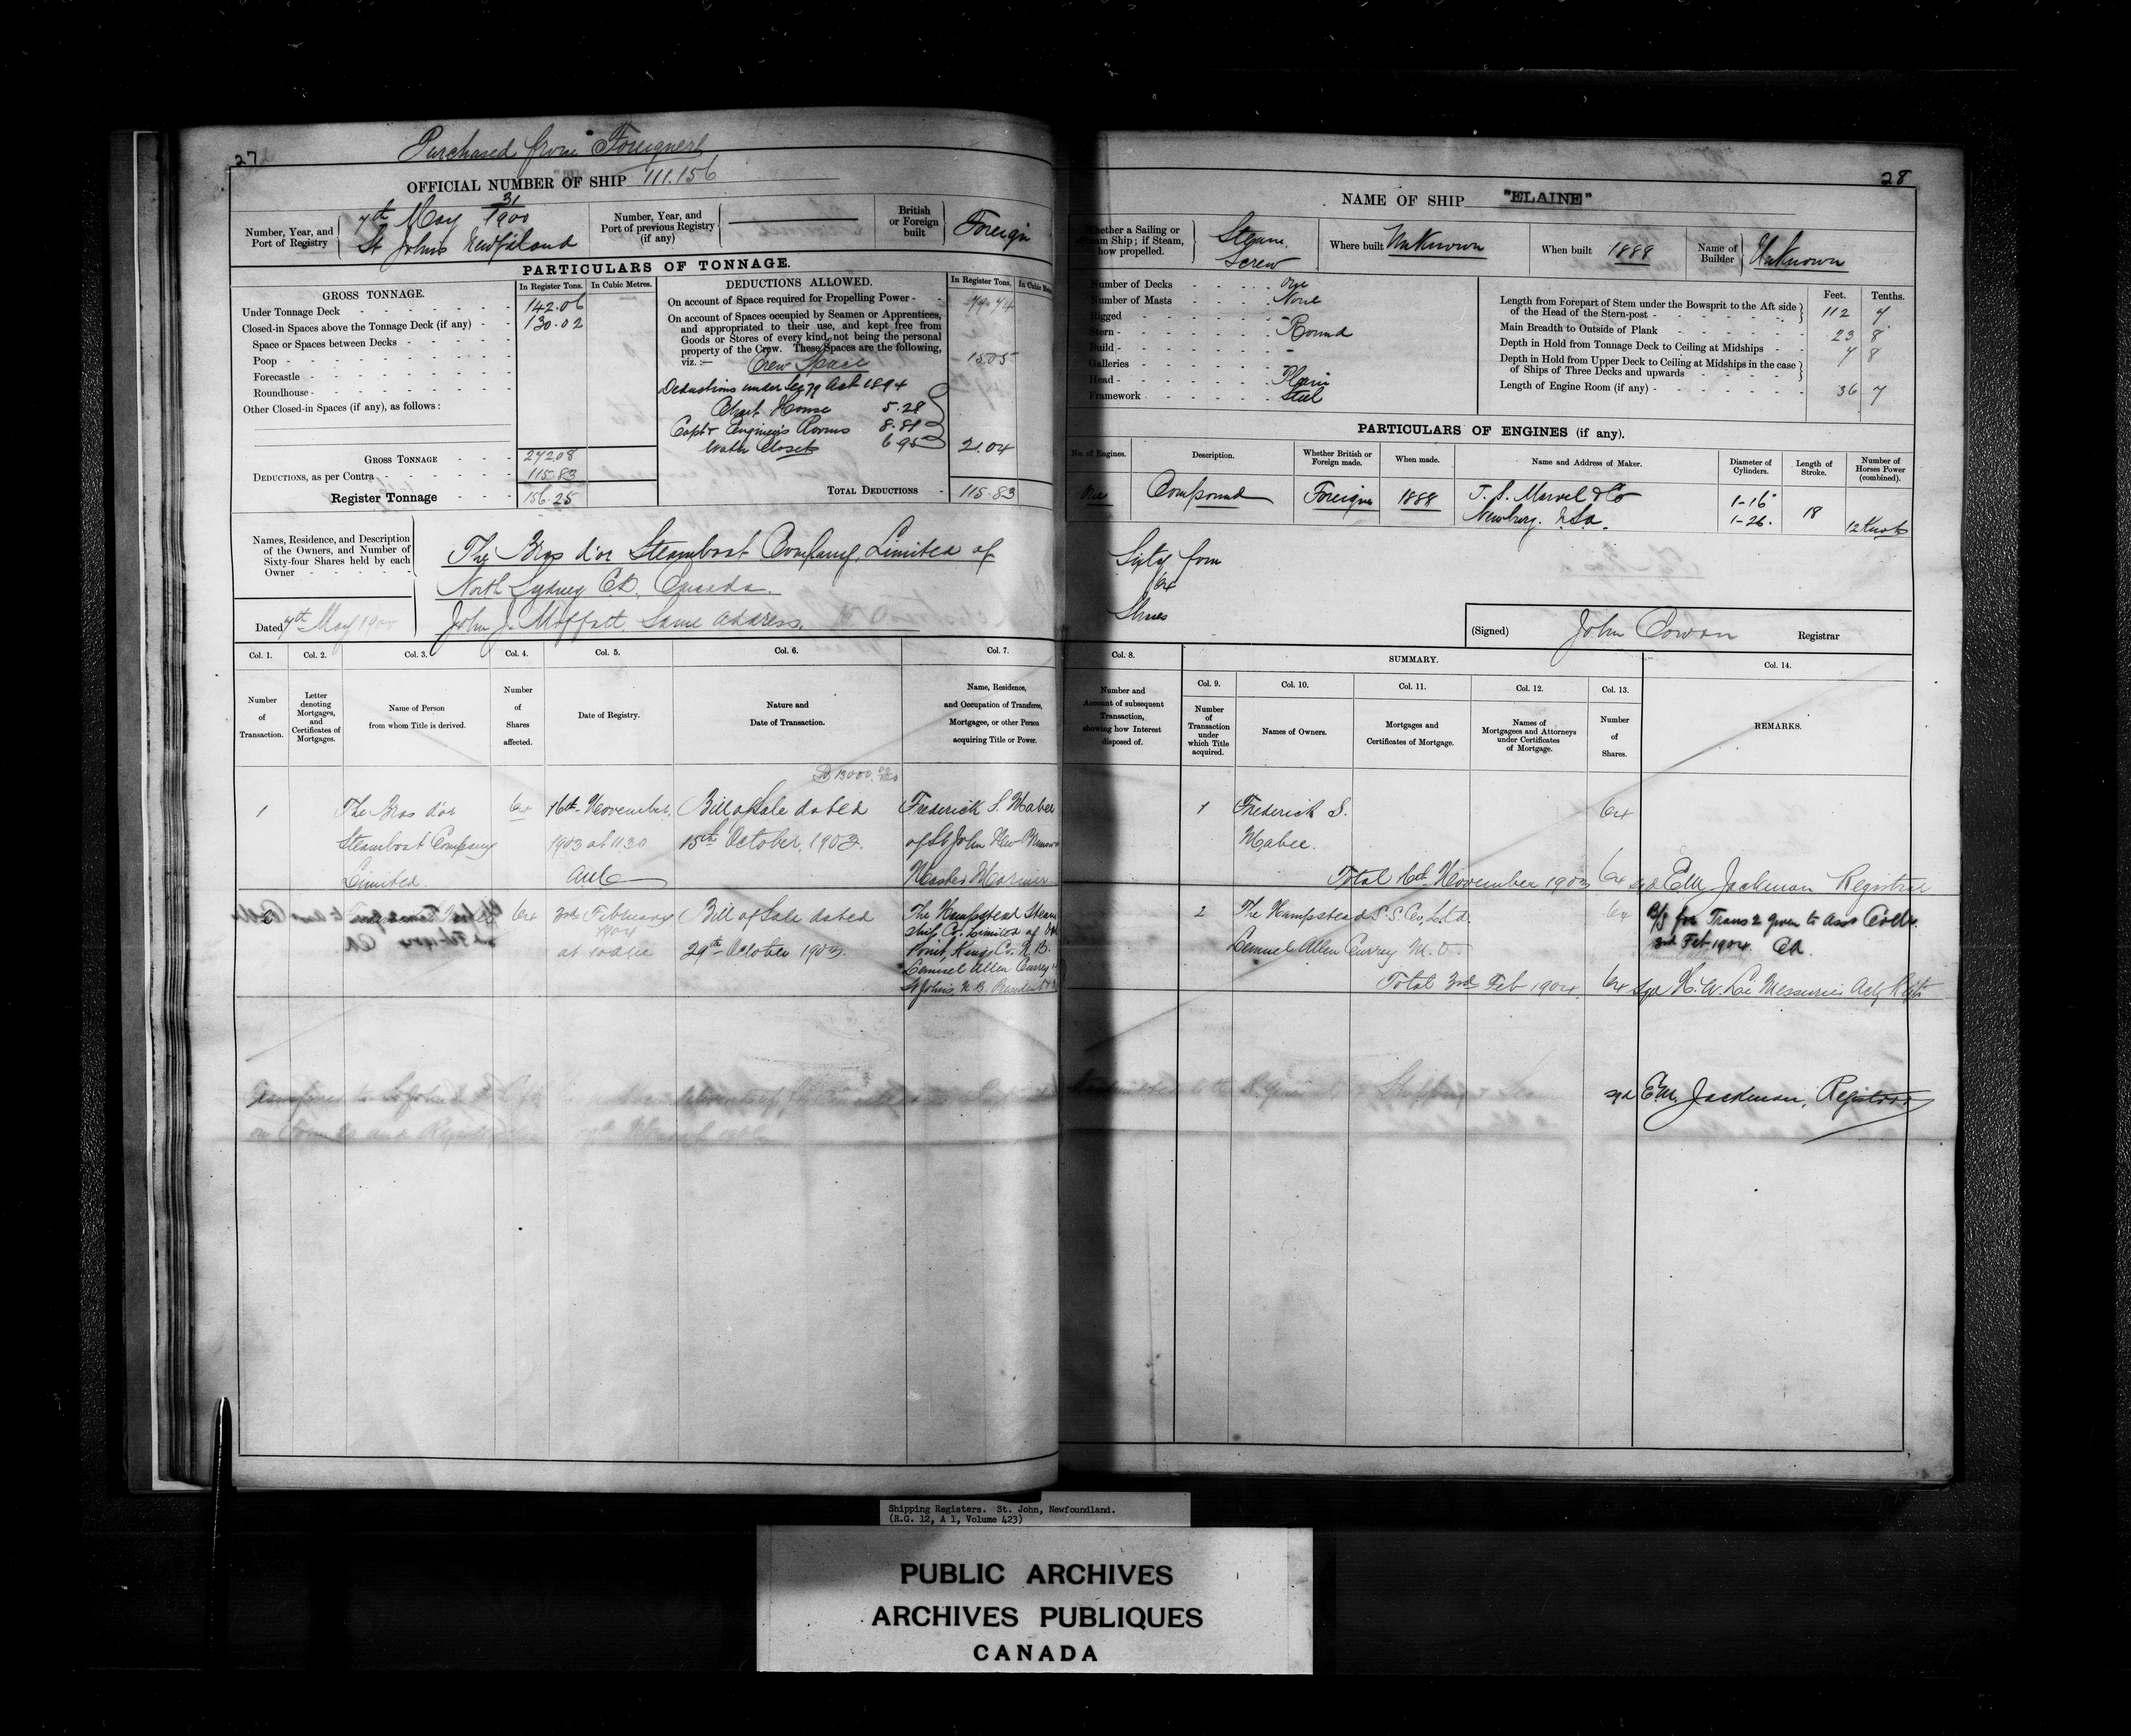 27
Purchased from Foreigners
OFFICIAL NUMBER OF SHIP 111.156
Number, Year, and
Port of Registry
31
7th May 1900
St John's Newf'dland
Number, Year, and
Port of previous Registry
(if any)
British
or Foreign
built
Foreign
PARTICULARS OF TONNAGE.
GROSS TONNAGE.
In Register Tons.
In Cubic Metres.
Under Tonnage Deck 142.06
Closed-in Spaces above the Tonnage Deck (if any) 130.02
Space or Spaces between Decks
Poop
Forecastle
Roundhouse
Other Closed-in Spaces (if any), as follows:
GROSS TONNAGE 272.08
DEDUCTIONS, as per Contra 115.83
Register Tonnage 156.25
DEDUCTIONS ALLOWED.
In Register Tons.
On account of Space required for Propelling Power
On account of Spaces occupied by Seamen or Apprentices,
and appropriated to their use, and kept free from
Goods or Stores of every kind, not being the personal
property of the Crew. These Spaces are the following,
viz.:—
Crew Space 15.05
Deductions under Sec 79 Act 1894
Chart House 5.28
Capt & Engineers Rooms 8.81
Water Closets 6.95
21.04
TOTAL DEDUCTIONS 115.83
Names, Residence, and Description
of the Owners, and Number of
Sixty-four Shares held by each
Owner
The Bras d'or Steamboat Company, Limited of
North Sydney C.B. Canada.
Dated 7th May 1900
John J. Moffatt. Same Address.
Col. 1.
Col. 2.
Col. 3.
Col. 4.
Col. 5.
Col. 6.
Col. 7.
Number
of
Transaction.
Letter
denoting
Mortgages,
and
Certificates of
Mortgages.
Name of Person
from whom Title is derived.
Number
of
Shares
affected.
Date of Registry.
Nature and
Date of Transaction.
Name, Residence,
and Occupation of Transferee,
Mortgagee, or other Person
acquiring Title or Power.
1
The Bras d'or
Steamboat Company
Limited.
64
16th November,
1903 at 11.30
$ 13000
Bill of Sale dated
15th October, 1903.
Frederick S. Mabee
of St John New
Master Mariner
64
3rd February
1904
Bill of Sale dated
29th October 1903.
The Hampstead Steam
ship Co. Limited of
Point, Kings Co. N.B.
Lemuel Allen Currey
St John's N.B. President
28
NAME OF SHIP "ELAINE"
Whether a Sailing or
Steam Ship; if Steam,
how propelled.
Steam.
Screw
Where built Unknown
When built 1888
Name of
Builder
Unknown
Number of Decks One
Number of Masts None
Rigged -
Stern Round
Build -
Galleries -
Head Plain
Framework Steel
Feet. Tenths.
Length from Forepart of Stem under the Bowsprit to the Aft side
of the Head of the Stern-post 112 7
Main Breadth to Outside of Plank 23 8
Depth in Hold from Tonnage Deck to Ceiling at Midships 7 8
Depth in Hold from Upper Deck to Ceiling at Midships in the case
of Ships of Three Decks and upwards
Length of Engine Room (if any) 36 7
PARTICULARS OF ENGINES (if any).
No. of Engines.
Description.
Whether British or
Foreign made.
When made.
Name and Address of Maker.
Diameter of
Cylinders.
Length of
Stroke.
Number of
Horses Power
(combined).
One
Compound
Foreign
1888
T. S. Marvel & Co
Newburg.
1-16"
1-26.
18
12 Knots
Sixty four
64
Shares
(Signed) John Cowan Registrar
Col. 8.
SUMMARY.
Col. 14.
Col. 9.
Col. 10.
Col. 11.
Col. 12.
Col. 13.
Number and
Account of subsequent
Transaction,
showing how Interest
disposed of.
Number
of
Transaction
under
which Title
acquired.
Names of Owners.
Mortgages and
Certificates of Mortgage.
Names of
Mortgagees and Attorneys
under Certificates
of Mortgage.
Number
of
Shares.
REMARKS.
1
Frederick S.
Mabee.
64
Total 16th November 1903 64 sgd E M Jackman Registrar
2
The Hampstead S.S. Co, Ltd.
64
Lemuel Allen Currey M.O.
B/S for Trans 2 given to Asst
3rd Feb 1904.
Total 3rd Feb 1904. 64 Sgd H. W. Le Messurier Actg
sgd E.M. Jackman, Registrar
Shipping Registers. St. John, Newfoundland.
(R.G. 12, A 1, Volume 423)
PUBLIC ARCHIVES
ARCHIVES PUBLIQUES
CANADA